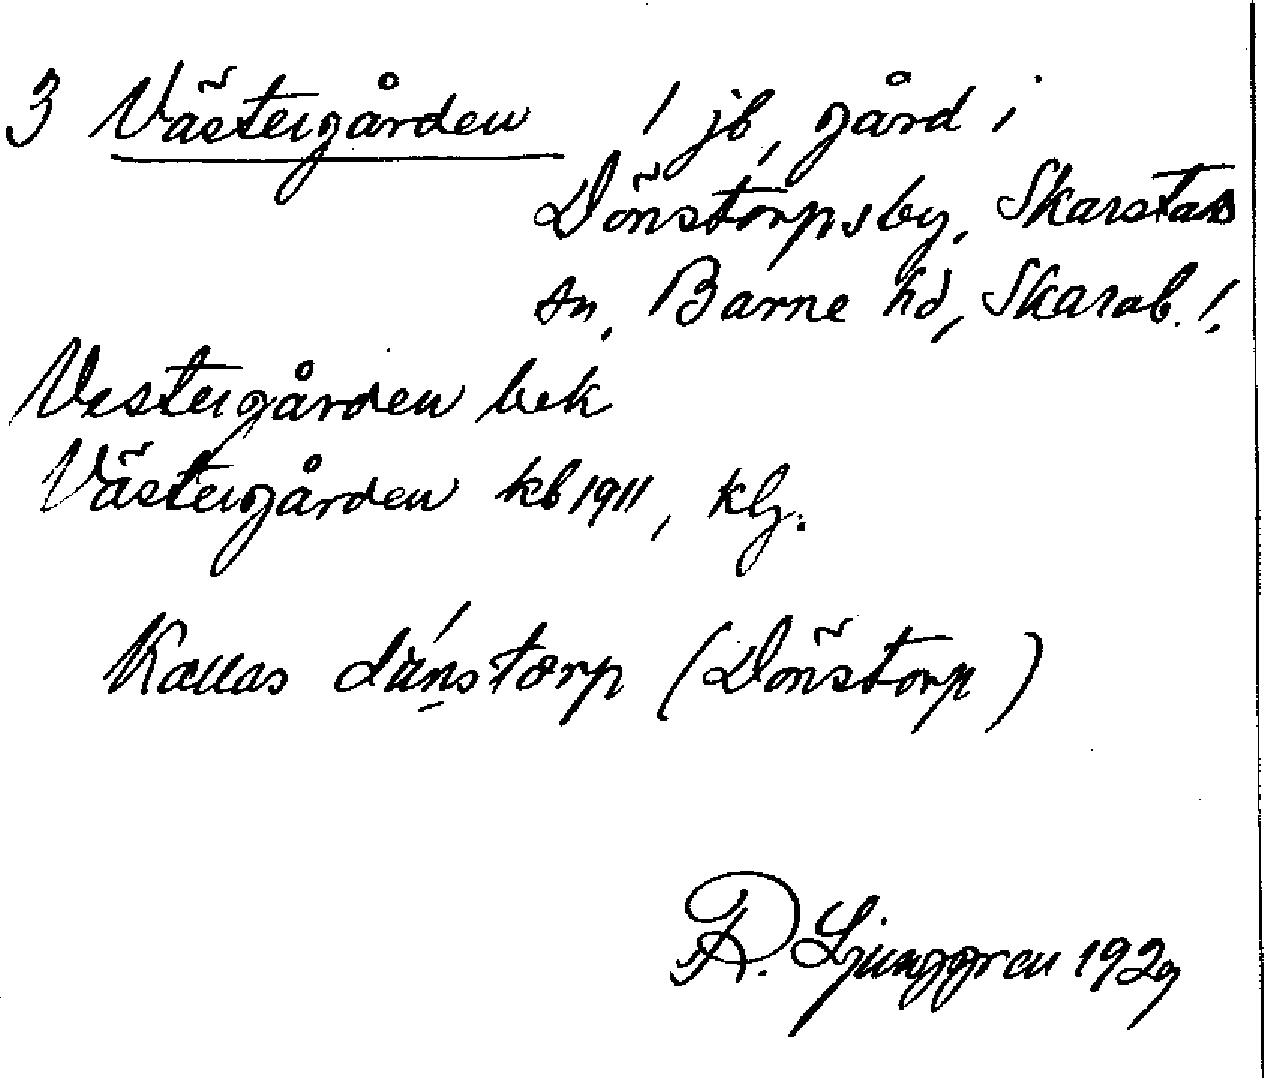 3 Västergården / jb, gård i
Dönstorpsby, Skarstads
sn, Barne hd, Skarab. /.
Vestergården bek
Västergården kb 1911, klj.
Kallas (Dönstorp)
R. Ljunggren 1929